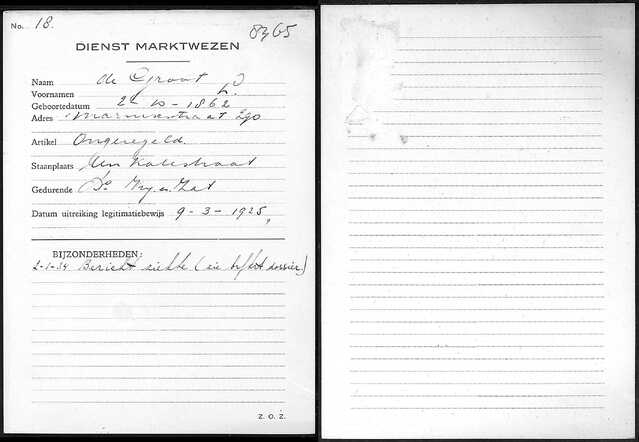 No. 18. 8365
DIENST MARKTWEZEN
Naam de Groot
Voornamen
Geboortedatum 22 10 - 1862
Adres Marnixstraat 290
Artikel Ongeregeld.
Staanplaats
Gedurende Do Vrij. en Zat
Datum uitreiking legitimatiebewijs 9-3-1925,
BIJZONDERHEDEN:
2-1-34 Bericht ziekte (zie dossier)
Z. O. Z.